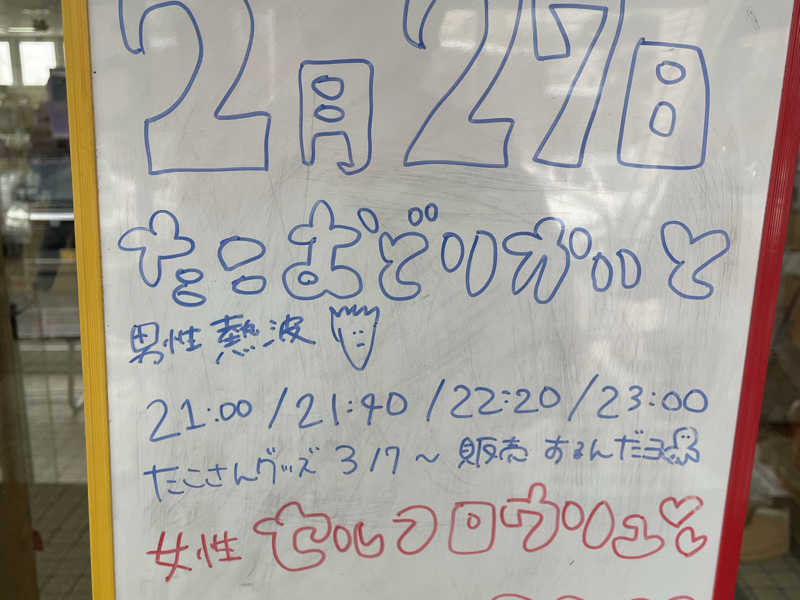 2月27日
たこおどりがいと
男性 熱波
21:00 / 21:40 / 22:20 / 23:00
たこさんグッズ 3/7～ 販売 するんだヨ
女性 セルフロウリュ♡♡